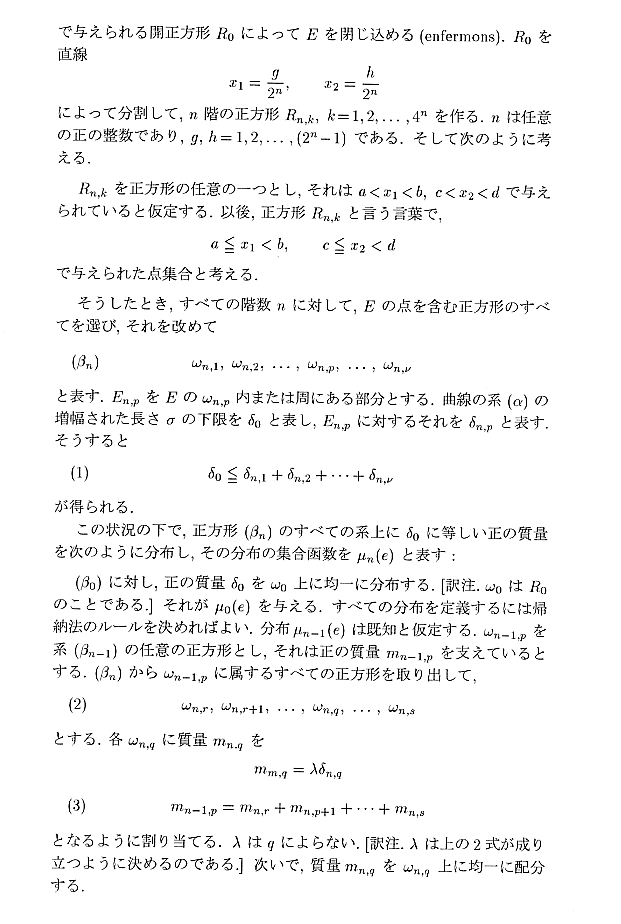 で与えられる開正方形 R₀ によって E を閉じ込める (enfermons). R₀ を
直線
x₁ = g/2ⁿ, x₂ = h/2ⁿ
によって分割して, n 階の正方形 Rₙ,ₖ, k=1, 2, ... , 4ⁿ を作る. n は任意
の正の整数であり, g, h=1, 2, ... , (2ⁿ−1) である. そして次のように考
える.
Rₙ,ₖ を正方形の任意の一つとし, それは a<x₁<b, c<x₂<d で与え
られていると仮定する. 以後, 正方形 Rₙ,ₖ と言う言葉で,
a ≦ x₁ < b, c ≦ x₂ < d
で与えられた点集合と考える.
そうしたとき, すべての階数 n に対して, E の点を含む正方形のすべ
てを選び, それを改めて
(βₙ) ω_{n,1}, ω_{n,2}, ... , ω_{n,p}, ... , ω_{n,ν}
と表す. E_{n,p} を E の ω_{n,p} 内または周にある部分とする. 曲線の系 (α) の
増幅された長さ σ の下限を δ₀ と表し, E_{n,p} に対するそれを δ_{n,p} と表す.
そうすると
(1) δ₀ ≦ δ_{n,1} + δ_{n,2} + ··· + δ_{n,ν}
が得られる.
この状況の下で, 正方形 (βₙ) のすべての系上に δ₀ に等しい正の質量
を次のように分布し, その分布の集合函数を μₙ(e) と表す :
(β₀) に対し, 正の質量 δ₀ を ω₀ 上に均一に分布する. [訳注. ω₀ は R₀
のことである.] それが μ₀(e) を与える. すべての分布を定義するには帰
納法のルールを決めればよい. 分布 μ_{n−1}(e) は既知と仮定する. ω_{n−1,p} を
系 (β_{n−1}) の任意の正方形とし, それは正の質量 m_{n−1,p} を支えていると
する. (βₙ) から ω_{n−1,p} に属するすべての正方形を取り出して,
(2) ω_{n,r}, ω_{n,r+1}, ... , ω_{n,q}, ... , ω_{n,s}
とする. 各 ω_{n,q} に質量 m_{n.q} を
m_{m,q} = λδ_{n,q}
(3) m_{n−1,p} = m_{n,r} + m_{n,p+1} + ··· + m_{n,s}
となるように割り当てる. λ は q によらない. [訳注. λ は上の 2 式が成り
立つように決めるのである.] 次いで, 質量 m_{n,q} を ω_{n,q} 上に均一に配分
する.